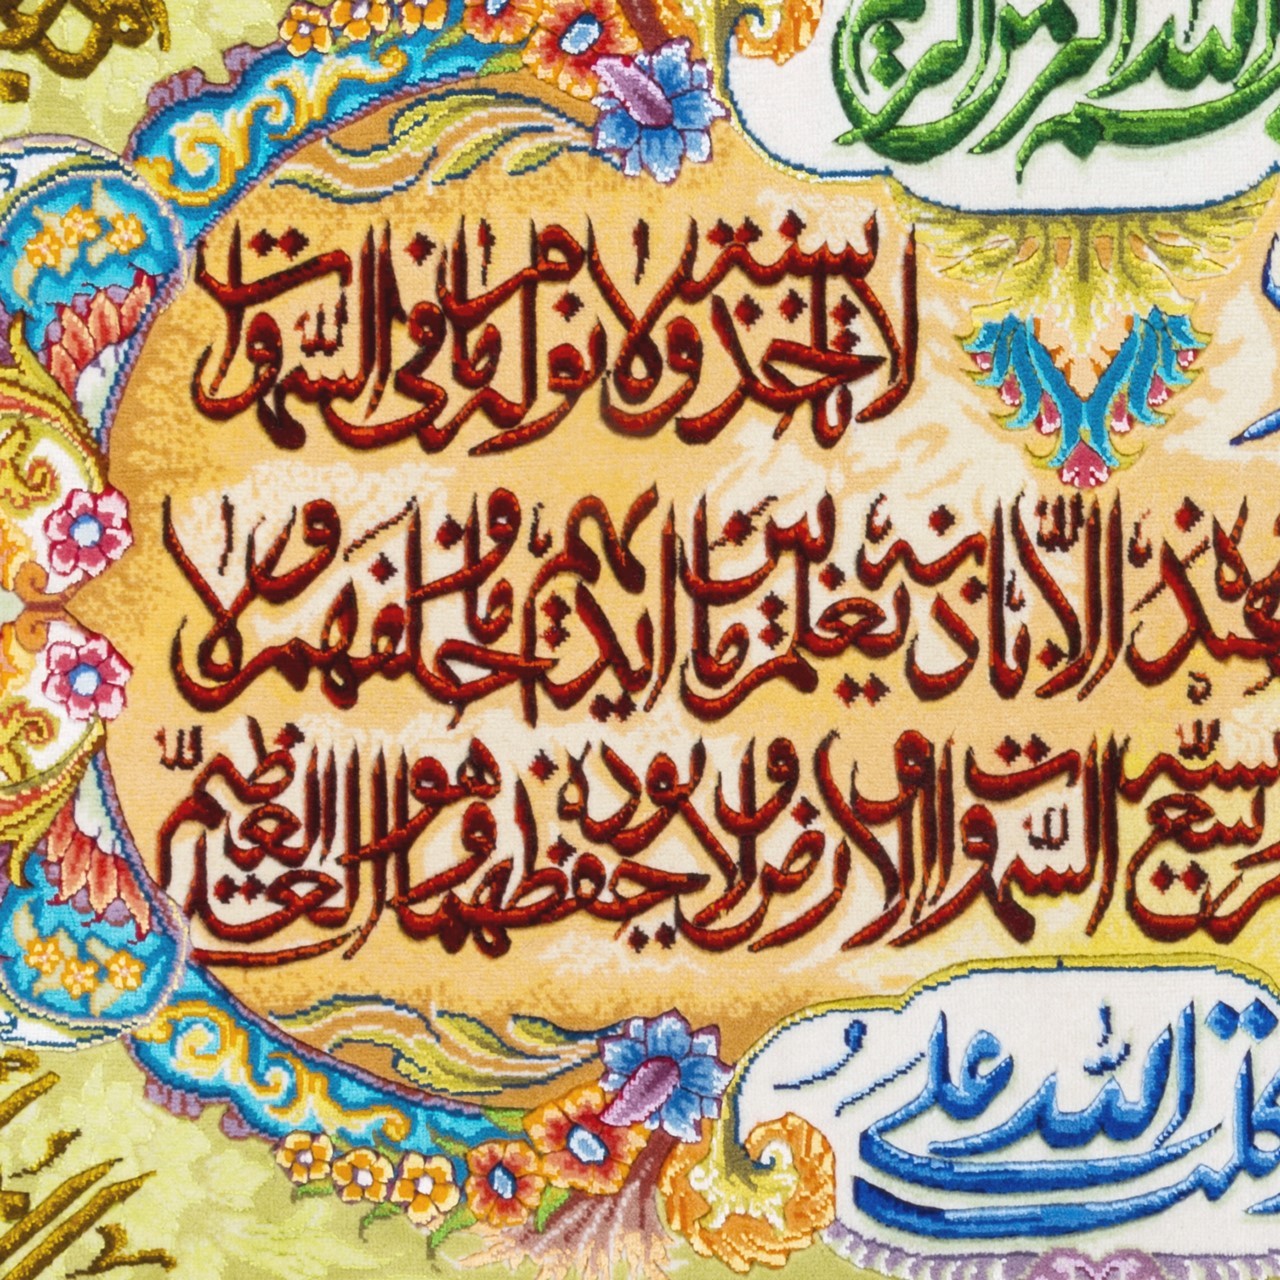 الله الرحمن الرحيم
لا تأخذه سنة ولا نوم له ما في السموات
عنده الا باذنه يعلم ما بين ايديهم وما خلفهم ولا
وسع كرسيه السموات والارض ولا يوده حفظهما وهو العلي العظيم
الله علي